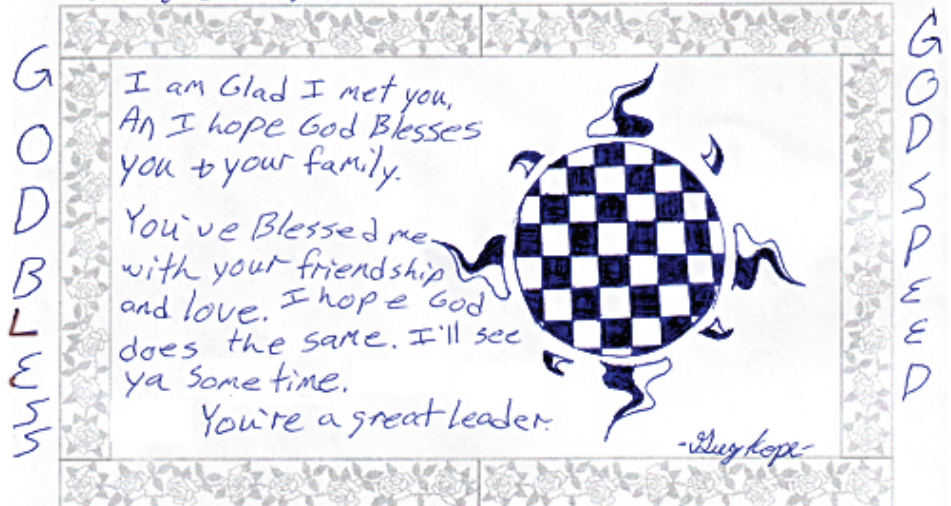 GOD BLESS
I am Glad I met you,
An I hope God Blesses
you & your family.
You've Blessed me
with your friendship
and love. I hope God
does the same. I'll see
ya sometime.
You're a great leader.
GODSPEED